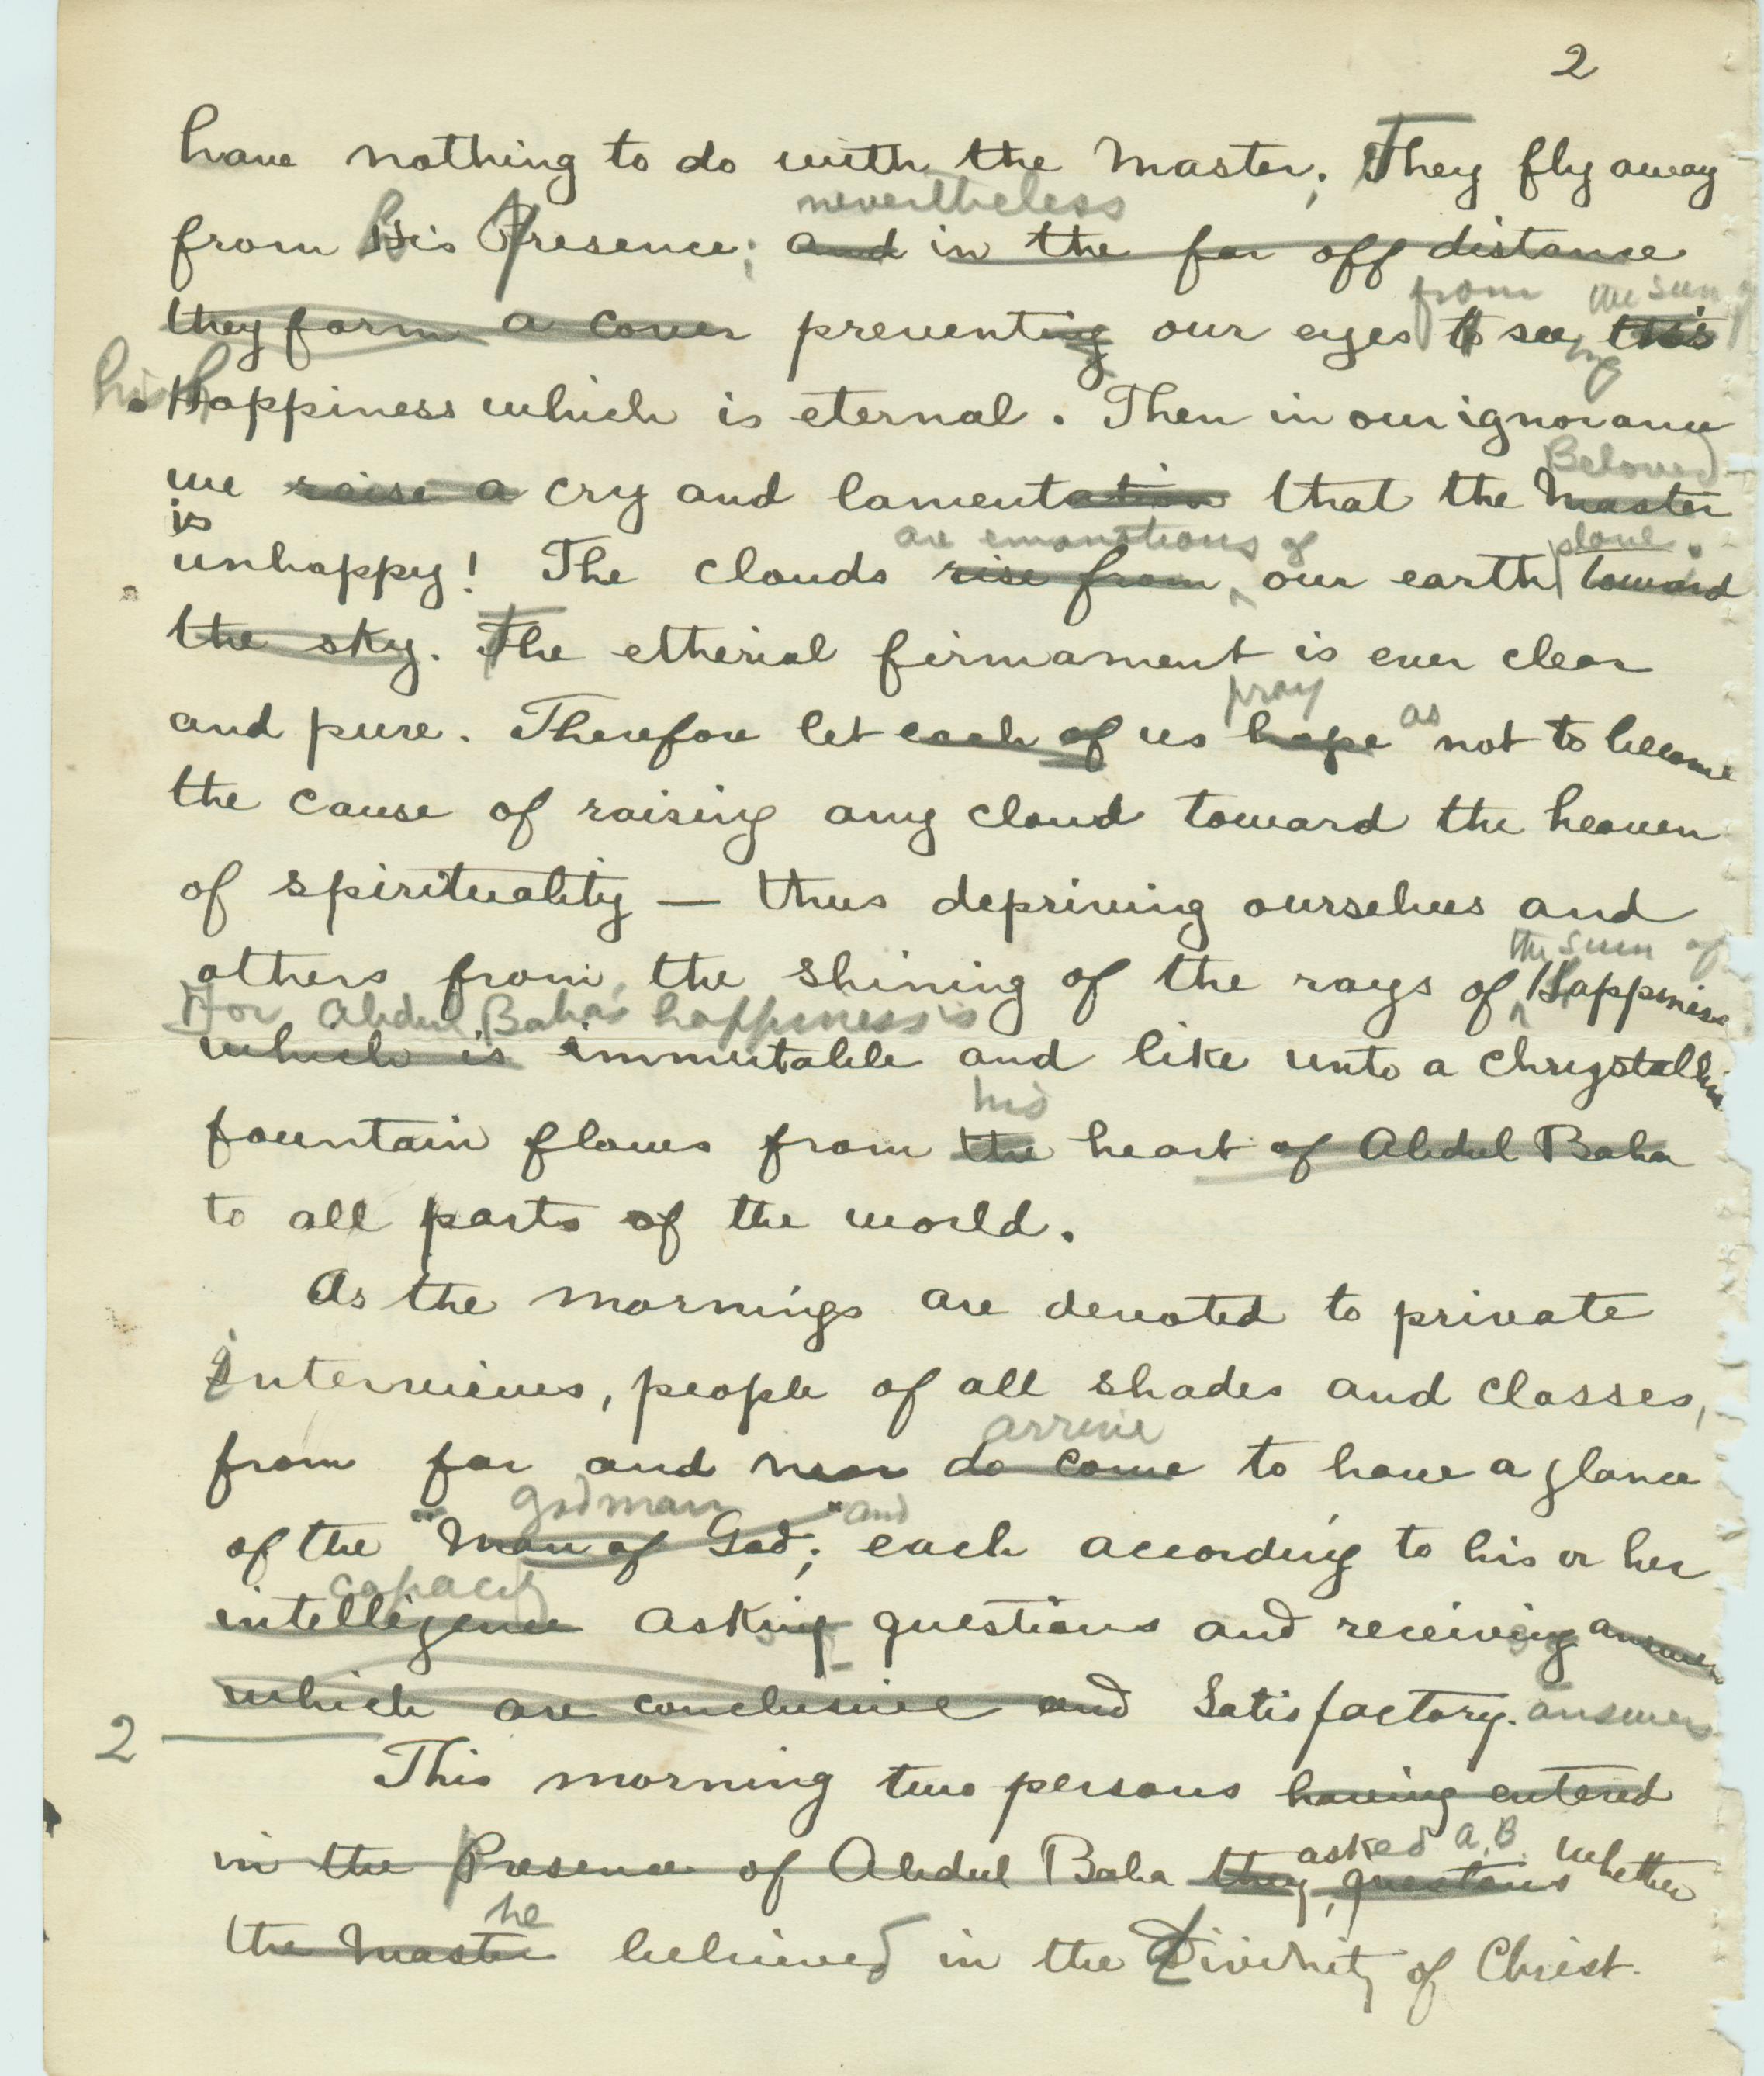 2
have nothing to do with the Master; They fly away
nevertheless
from his Presence; and in the far off distance
from the sun of
they form a cover preventing our eyes to seeing this
his happiness which is eternal. Then in our ignorance
Beloved
we raise a cry and lamentation that the Master
is
are emanations of plane.
unhappy! The clouds rise from, our earth toward
the sky. The etherial firmament is ever clear
pray as
and pure. Therefore let each of us hope not to become
the cause of raising any cloud toward the heaven
of spirituality — thus depriving ourselves and
the sun of
others from the shining of the rays of Happiness
For Abdul Baha's happiness is
which is immutable and like unto a chrystalline
his
fountain flows from the heart of Abdul Baha
to all parts of the world.
As the mornings are devoted to private
interviews, people of all shades and classes,
arrive
from far and near do come to have a glance
godman and
of the "Man of God"; each according to his or her
capacity
intelligence asking questions and receiving answers
which are conclusive and satisfactory. answers
2
This morning two persons having entered
asked A.B. whether
in the Presence of Abdul Baha they, questions
he
the Master believed in the Divinity of Christ.